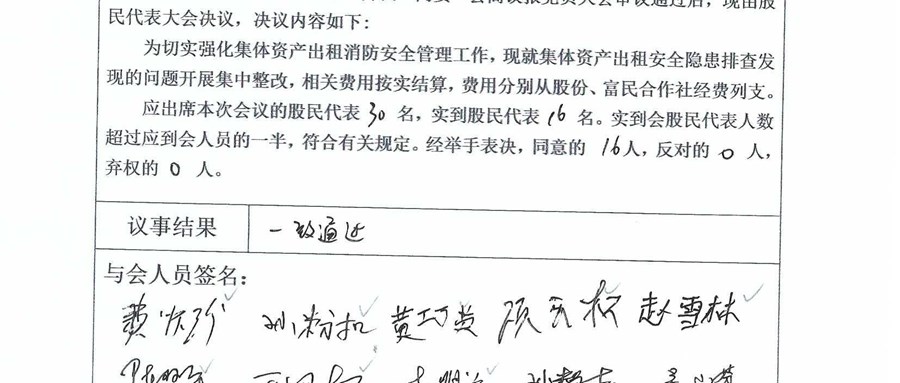 会商议报党员大会审议通过后，现由股
民代表大会决议，决议内容如下：
为切实强化集体资产出租消防安全管理工作，现就集体资产出租安全隐患排查发
现的问题开展集中整改，相关费用按实结算，费用分别从股份、富民合作社经费列支。
应出席本次会议的股民代表 30 名，实到股民代表 16 名。实到会股民代表人数
超过应到会人员的一半，符合有关规定。经举手表决，同意的 16人，反对的 0 人，
弃权的 0 人。
议事结果 一致通过
与会人员签名：
孙粉扣 黄巧英 赵雪林